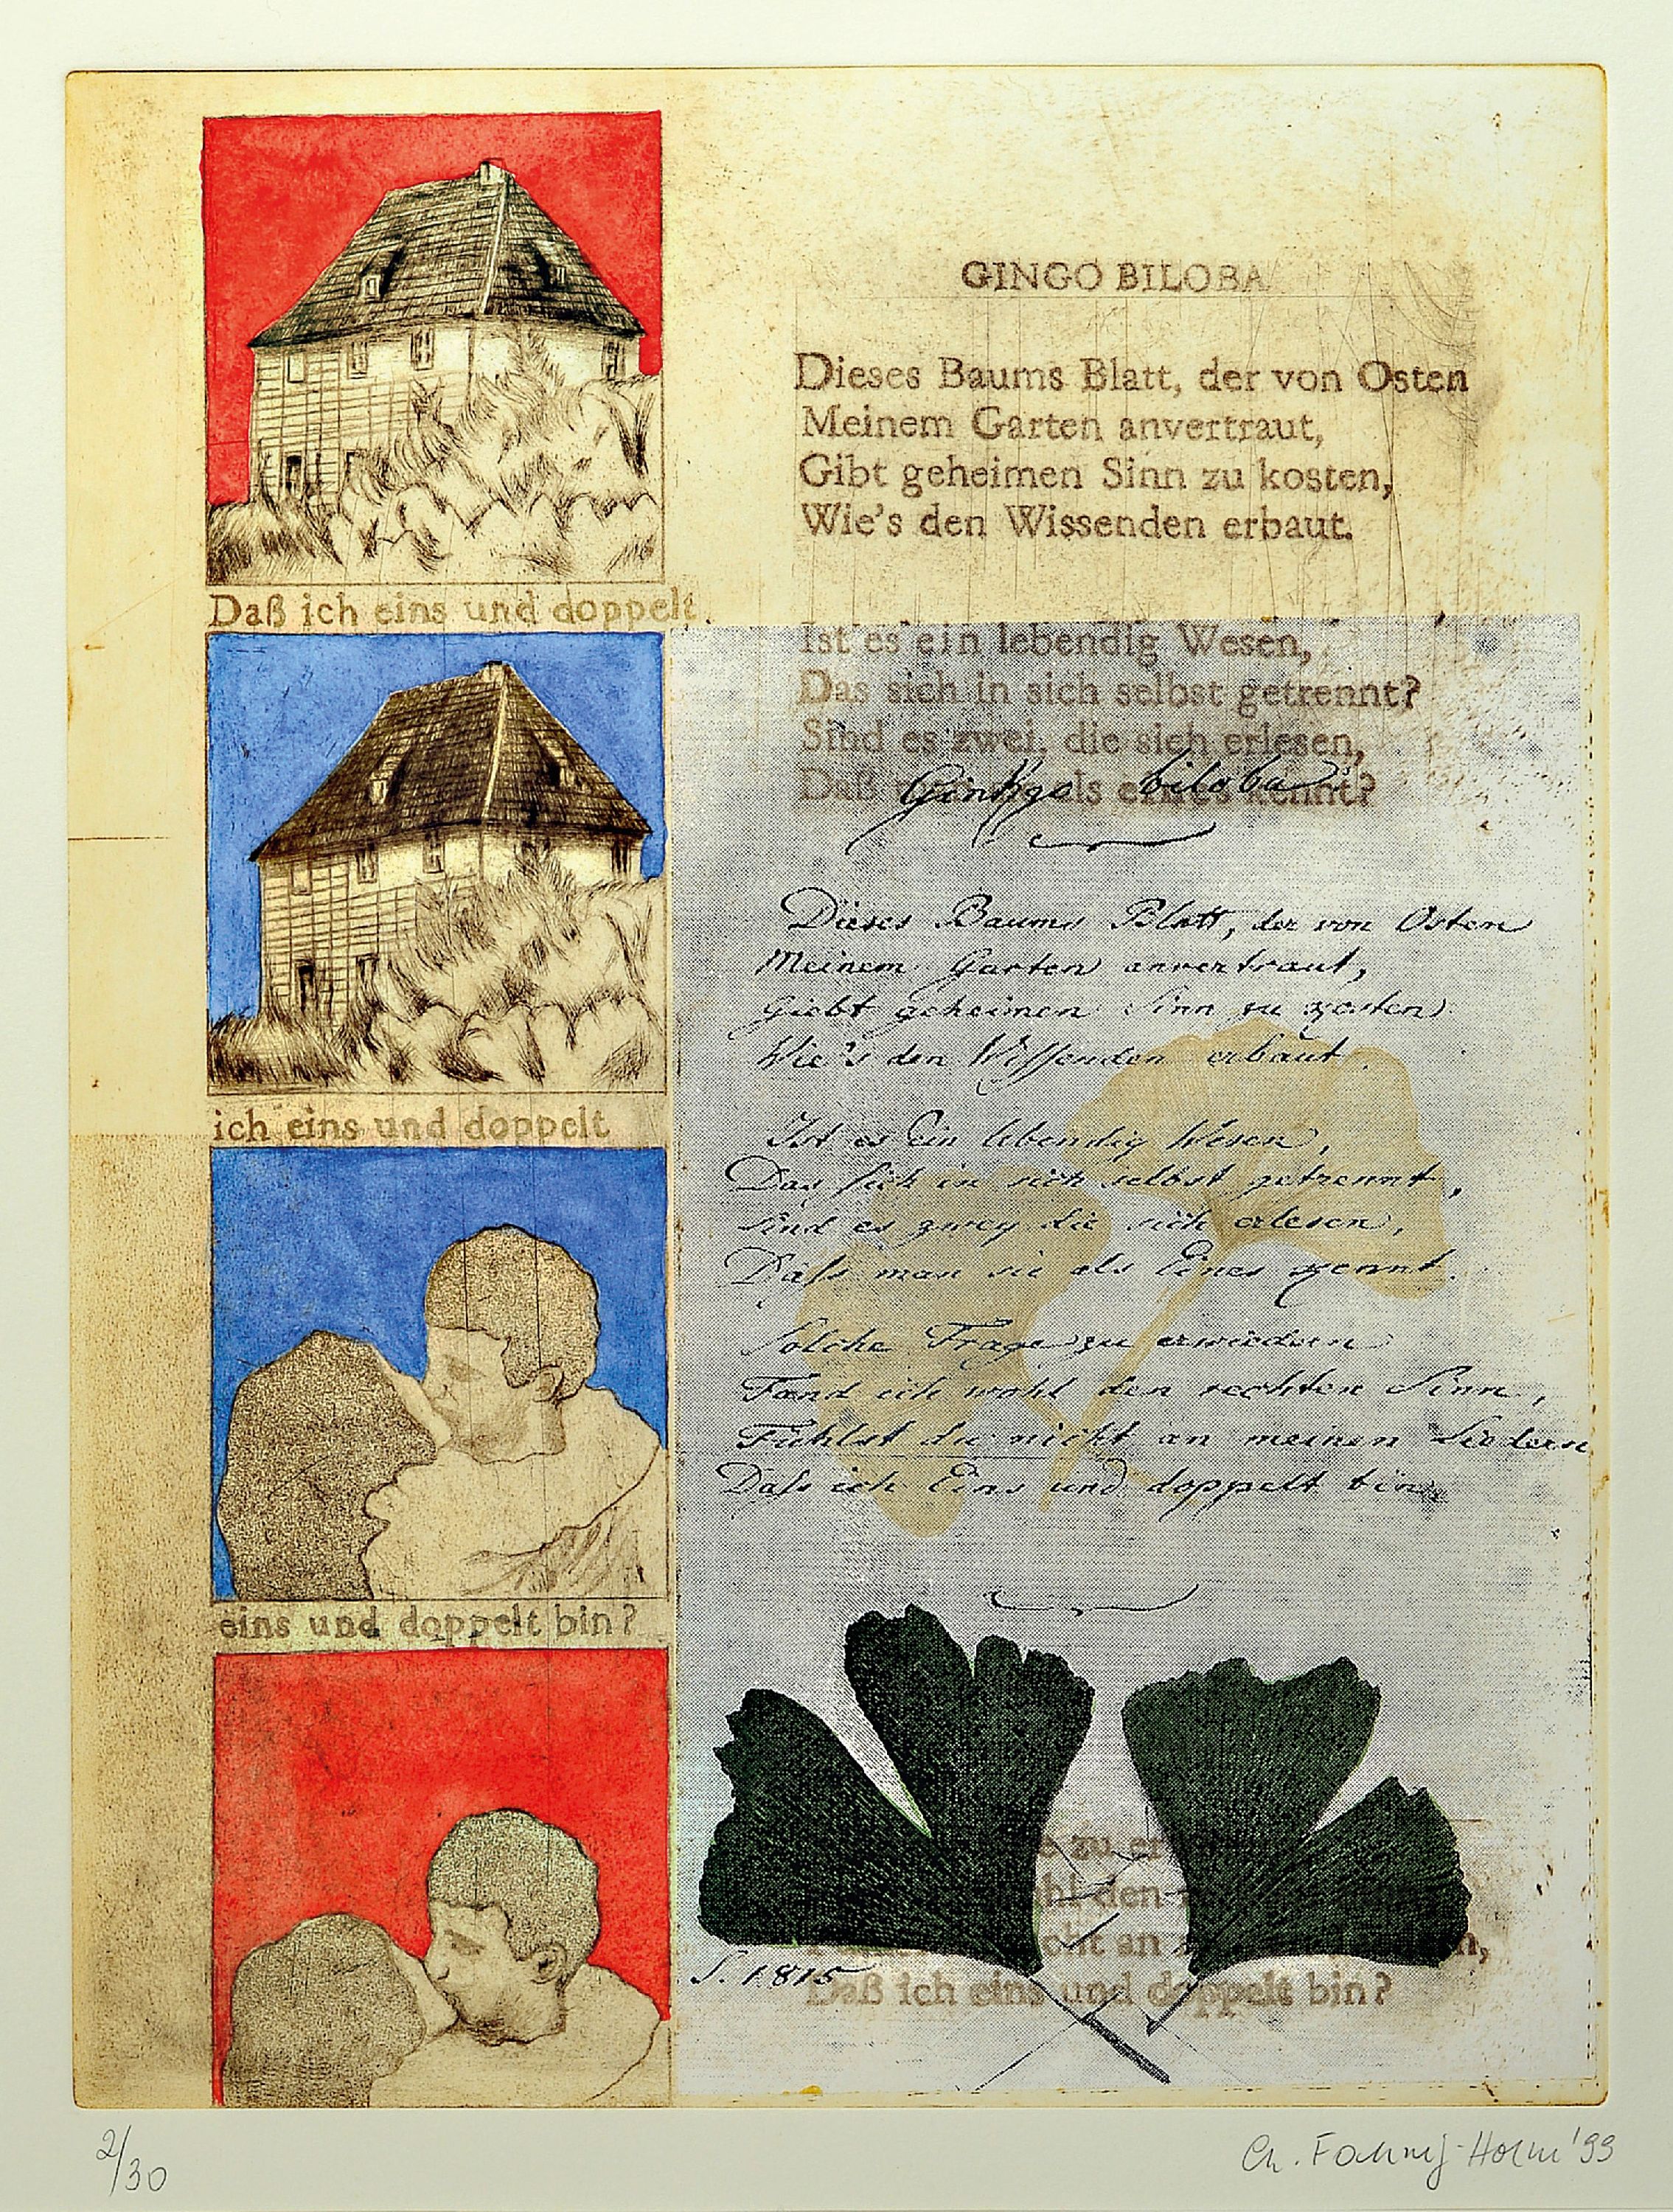 GINGO BILOBA
Dieses Baums Blatt, der von Osten
Meinem Garten anvertraut,
Gibt geheimen Sinn zu kosten,
Wie's den Wissenden erbaut.
Daß ich eins und doppelt.
ich eins und doppelt
eins und doppelt bin?
Ist es ein lebendig Wesen,
Das sich in sich selbst getrennt?
Sind es zwei, die sich erlesen,
Daß als eines kennt?
Ginkgo biloba
Dieses Baums Blatt, der von Osten
Meinem Garten anvertraut,
Giebt geheimen Sinn zu kosten
Wie's den Wissenden erbaut.
Ist es Ein lebendig Wesen,
Das sich in sich selbst getrennt,
Sind es zwey die sich erlesen,
Dass man sie als Eines kennt.
Solche Frage zu erwiedern
Fand ich wohl den rechten Sinn,
Fühlst du nicht an meinen Liedern
Dass ich Eins und doppelt bin.
zu
den
an
S. 1815
Daß ich eins und doppelt bin?
2/30
Ch. '99